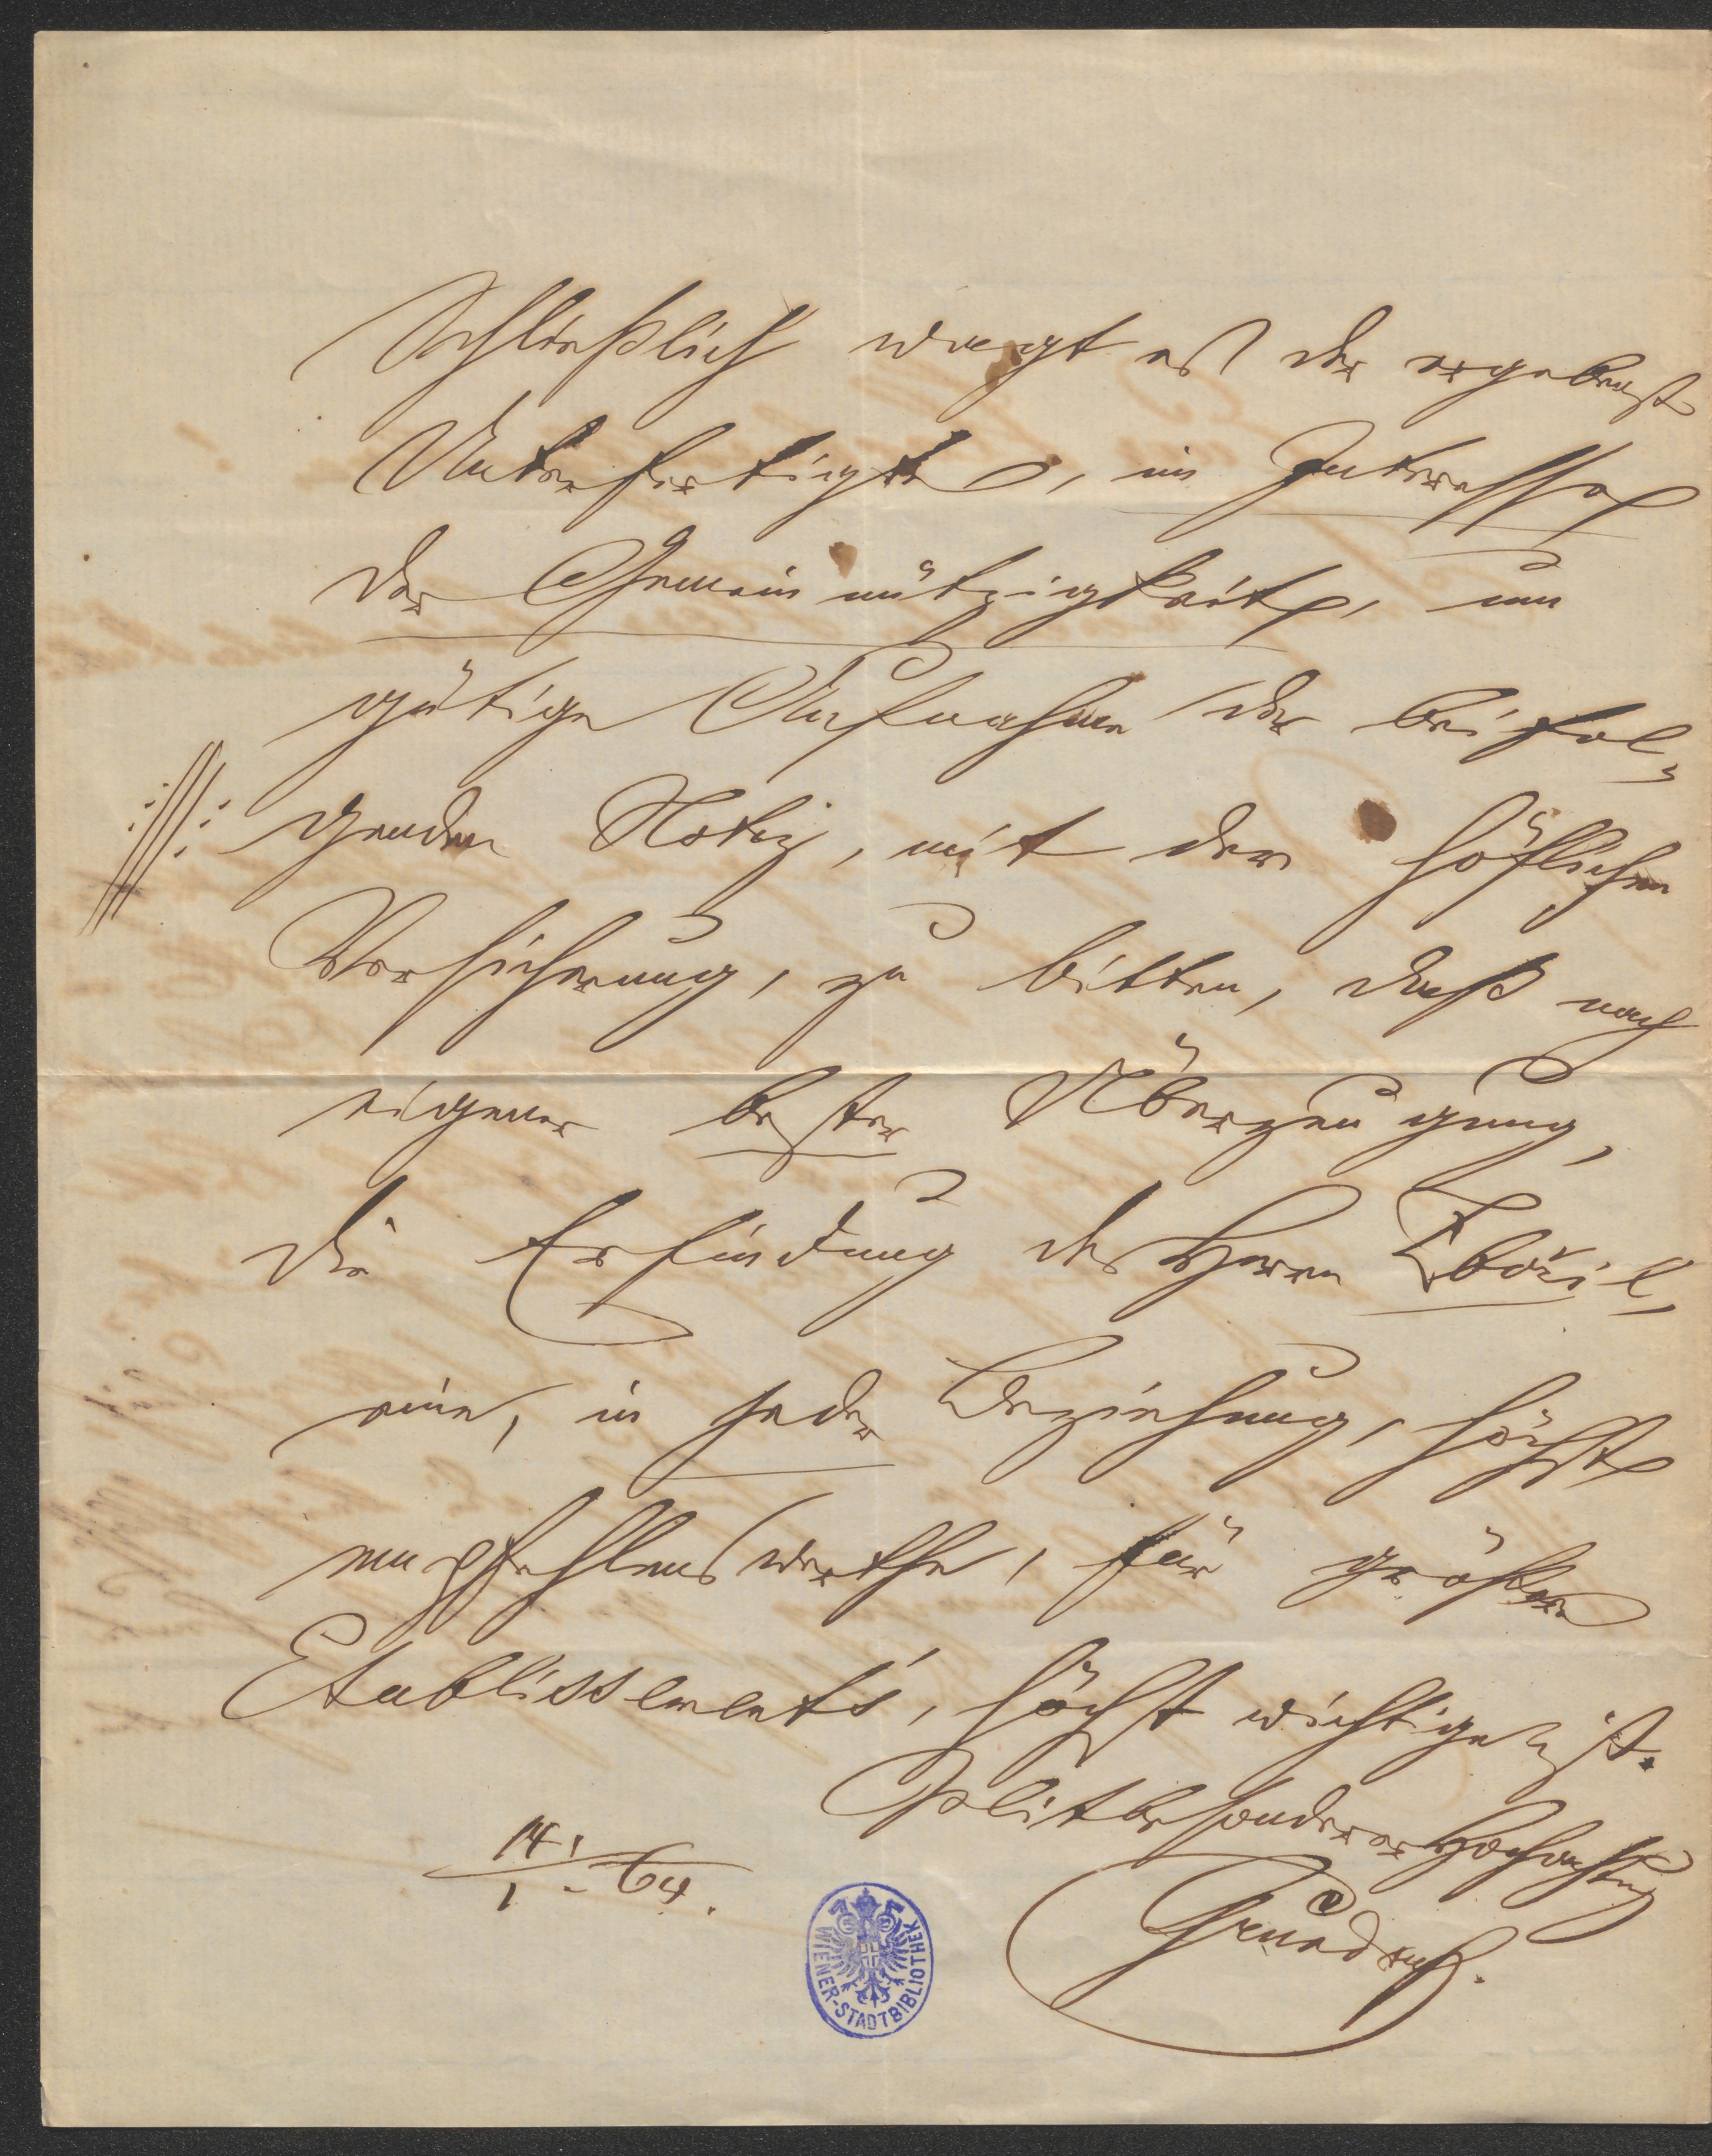 Schließlich wagt es der ergebenst
Unterfertigte, im Interesse
der Gemeinnützigkeit, um
gütige Aufnahme der beifol-
genden Notiz, mit der höflichen
Versicherung, zu bitten, daß nach
eigener bester Überzeugung,
die Erfindung des Herrn
eine, in jeder Beziehung, höchst
empfehlenswerthe, für größere
Etablissements, höchst wichtige ist.
Mit besonderer Hochachtung
14./1. 64.
WIENER-STADTBIBLIOTHEK